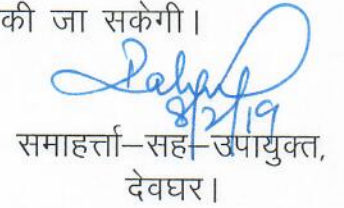 की जा सकेगी।
8/2/19
समाहर्त्ता–सह–उपायुक्त,
देवघर।